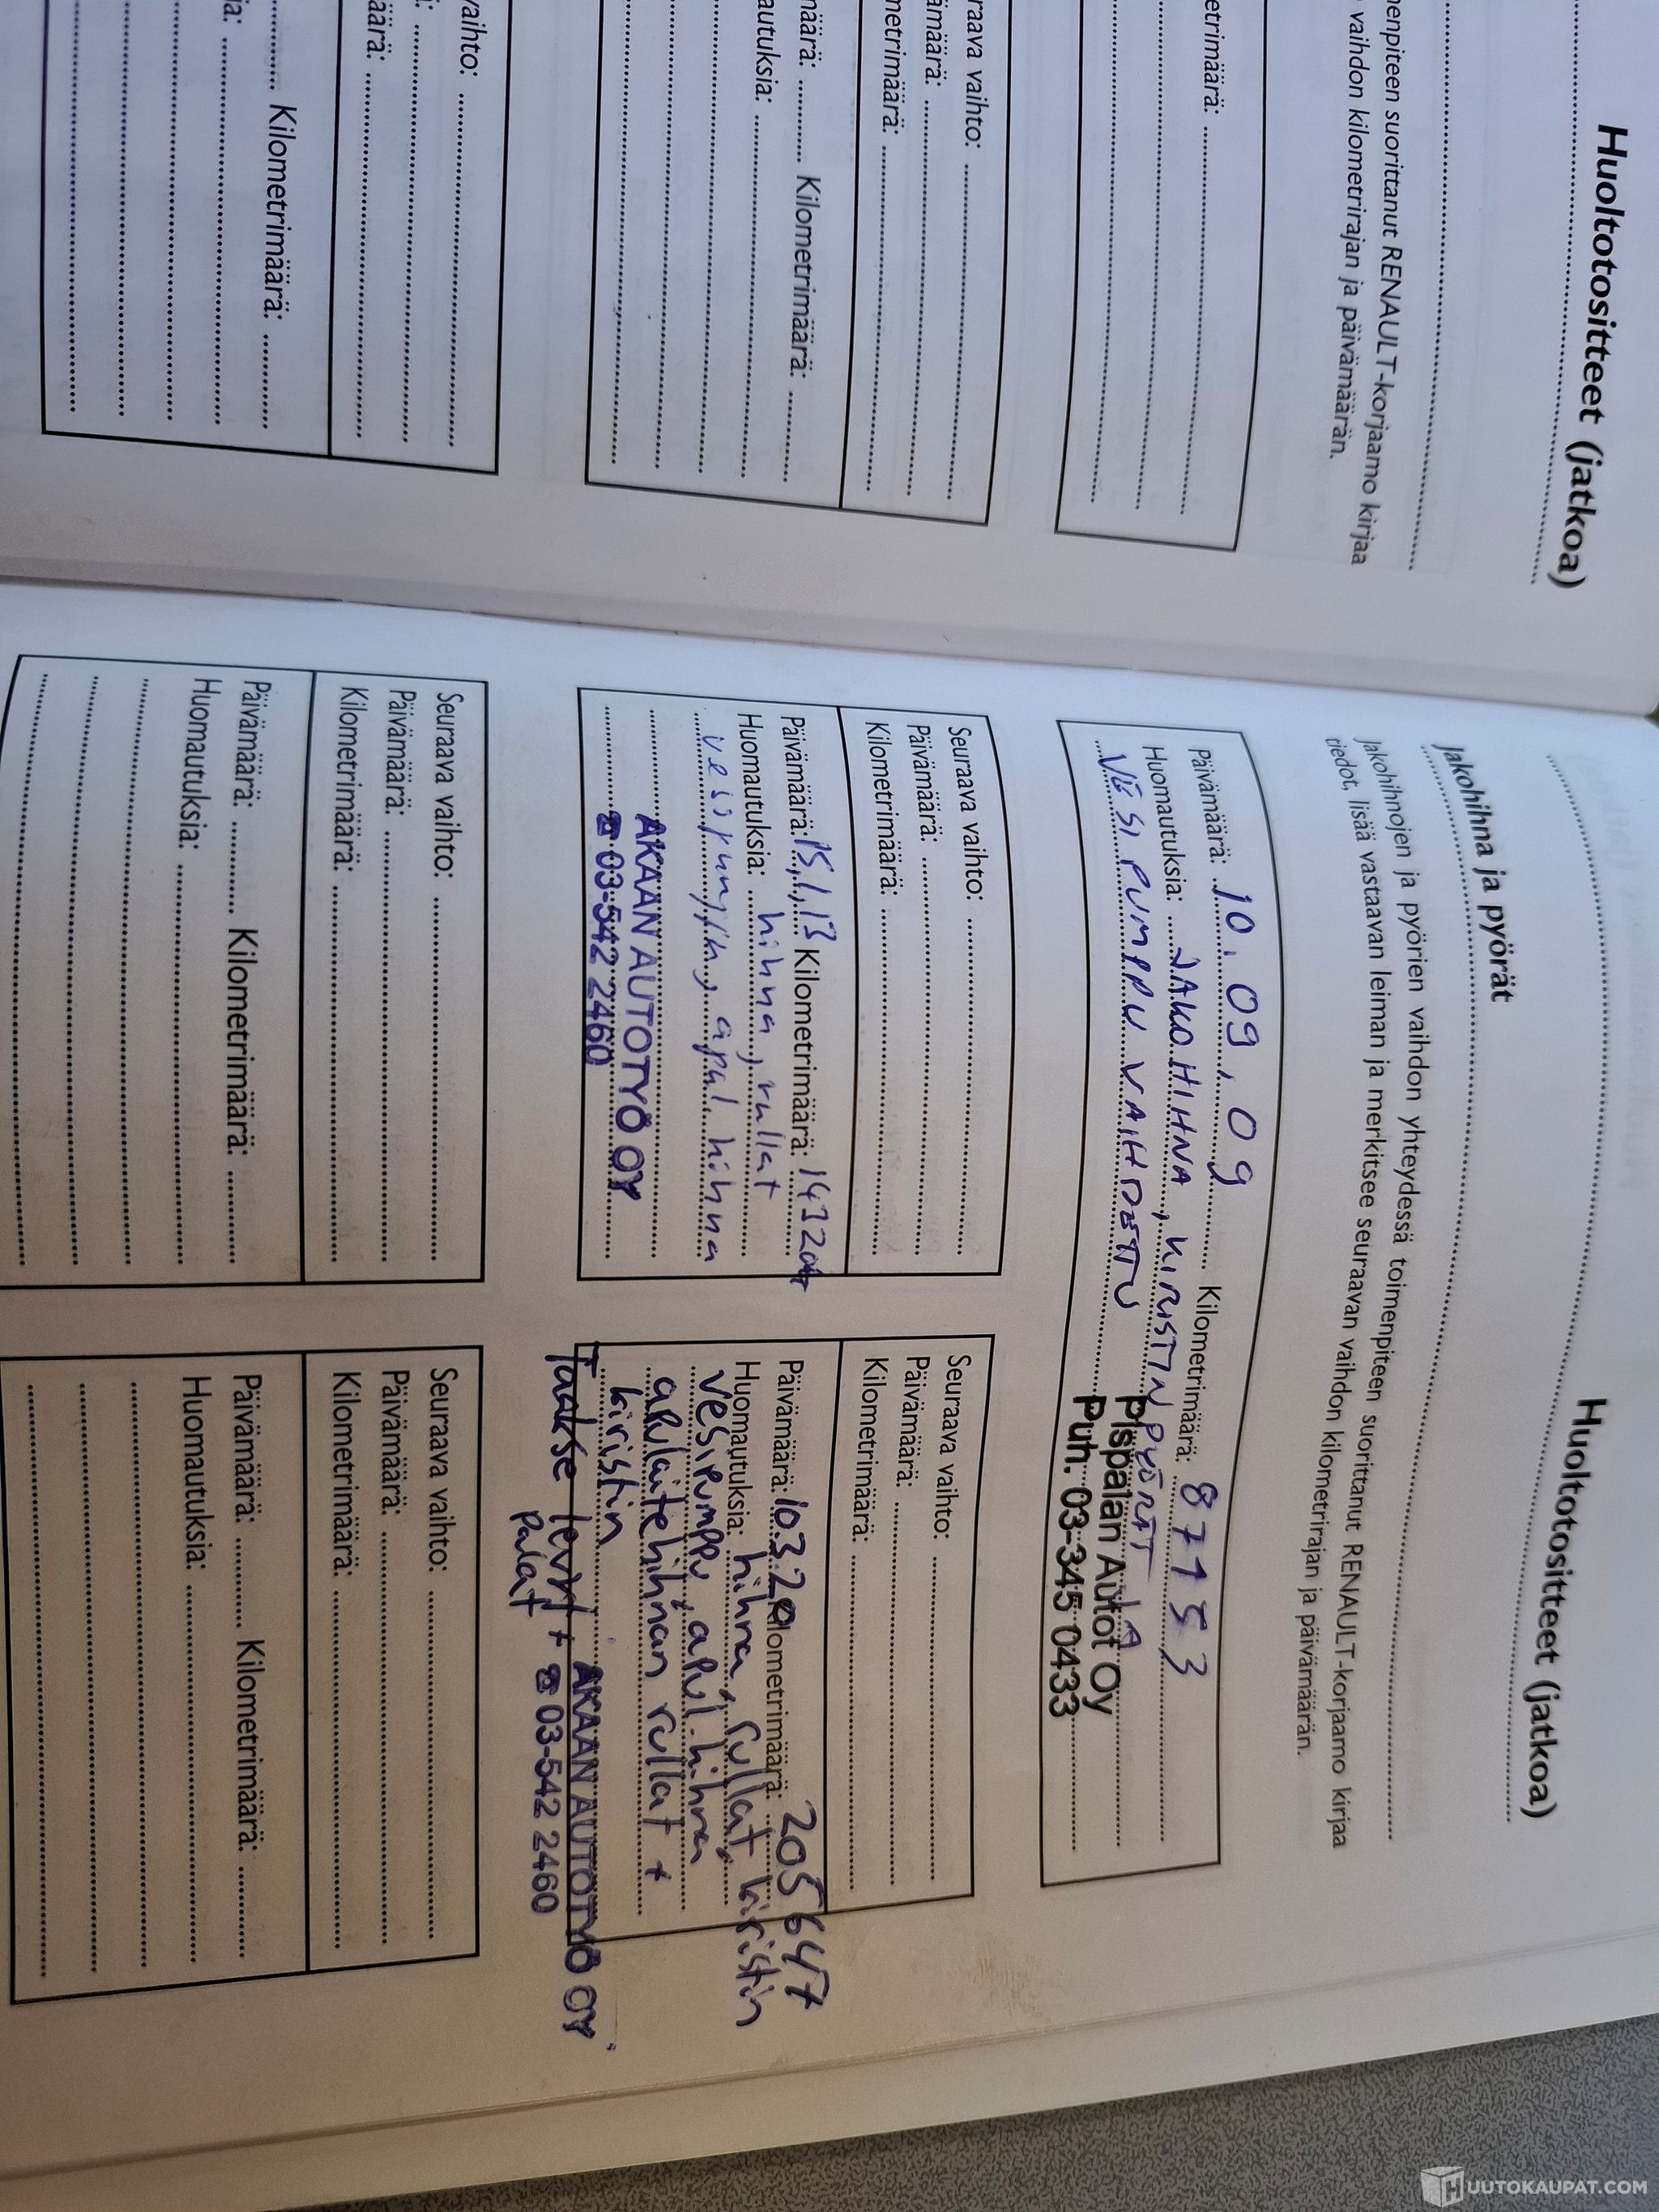 Huoltotositteet (jatkoa)
menpiteen suorittanut RENAULT-korjaamo kirjaa
vaihdon kilometrirajan ja päivämäärän.
etrimäärä:
raava vaihto:
ämäärä:
metrimäärä:
määrä: Kilometrimäärä:
autuksia:
vaihto:
i:
äärä:
Kilometrimäärä:
ia:
Huoltotositteet (jatkoa)
Jakohihna ja pyörät
Jakohihnojen ja pyörien vaihdon yhteydessä toimenpiteen suorittanut RENAULT-korjaamo kirjaa
tiedot, lisää vastaavan leiman ja merkitsee seuraavan vaihdon kilometrirajan ja päivämäärän.
Päivämäärä: 10.09.09 Kilometrimäärä: 87153
Huomautuksia: JAKOHIHNA, KIRISTINPYÖRÄT JA
VESIPUMPPU VAIHDETTU
Pispalan Autot Oy
Puh. 03-345 0433
Seuraava vaihto:
Päivämäärä:
Kilometrimäärä:
Päivämäärä: 15.1.13 Kilometrimäärä:
Huomautuksia: hihna, rullat
apul. hihna
AKAAN AUTOTYÖ OY
☎ 03-542 2460
Seuraava vaihto:
Päivämäärä:
Kilometrimäärä:
Päivämäärä: Kilometrimäärä: 205647
Huomautuksia: hihna, rullat, kiristin
vesipumppu, apul.hihna
apulaitehihnan rullat +
kiristin
Taakse levyt +
palat
AKAAN AUTOTYÖ OY
☎ 03-542 2460
Seuraava vaihto:
Päivämäärä:
Kilometrimäärä:
Päivämäärä: Kilometrimäärä:
Huomautuksia:
Seuraava vaihto:
Päivämäärä:
Kilometrimäärä:
Päivämäärä: Kilometrimäärä:
Huomautuksia:
HUUTOKAUPAT.COM